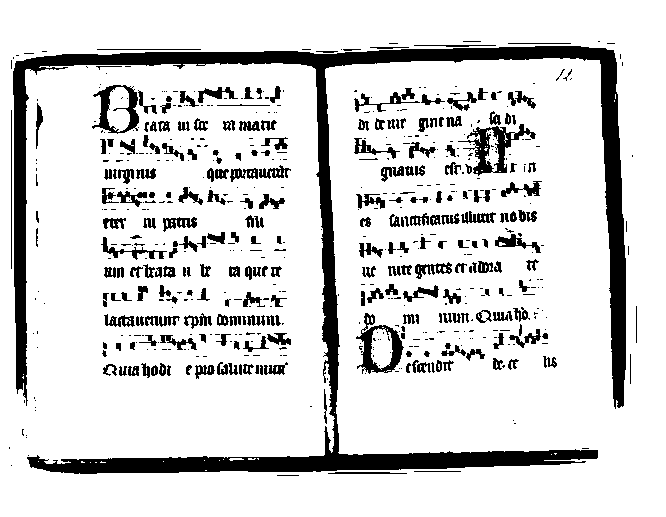 Beata uisce ra marie
uirginis que portauerūt
eter ni patris filii
um et beata u be ra que te
lactauerunt xpm dominum.
Quia hodi e pro salute mun
12
di de uir gine na sci di
gnatus est. V Dies
es sanctificatus illuxit nobis
ue nite gentes et adora te
do mi num. Quia ho.
Descendit de ce lis